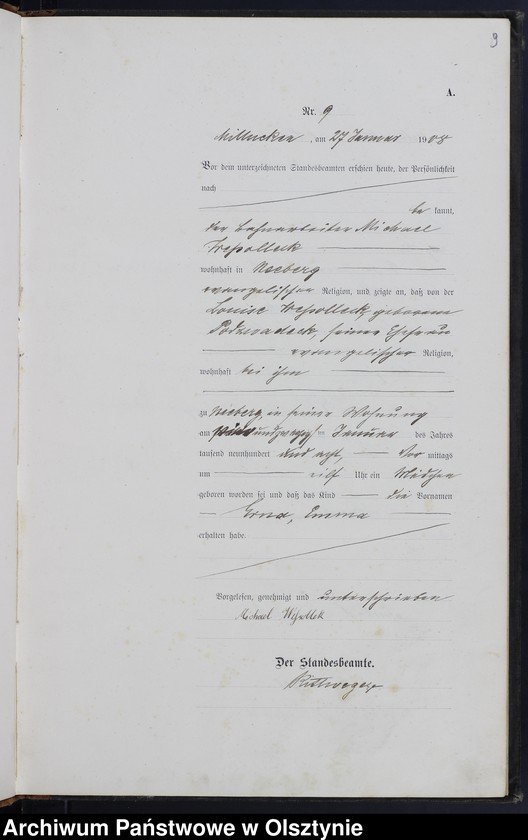 9
A.
Nr. 9
Millucken, am 27 Januar 1908
Vor dem unterzeichneten Standesbeamten erschien heute, der Persönlichkeit
nach
be kannt,
der Bahnarbeiter Michael
wohnhaft in Neeberg
evangelischer Religion, und zeigte an, daß von der
Louise geborene
seiner Ehefrau
evangelischer Religion,
wohnhaft bei ihm
zu Neeberg, in seiner Wohnung
am undzwanzigsten Januar des Jahres
tausend neunhundert und acht, Vor mittags
um elf Uhr ein Mädchen
geboren worden sei und daß das Kind die Vornamen
Erna, Emma
erhalten habe.
Vorgelesen, genehmigt und unterschrieben
Michael
Der Standesbeamte.
Archiwum Państwowe w Olsztynie